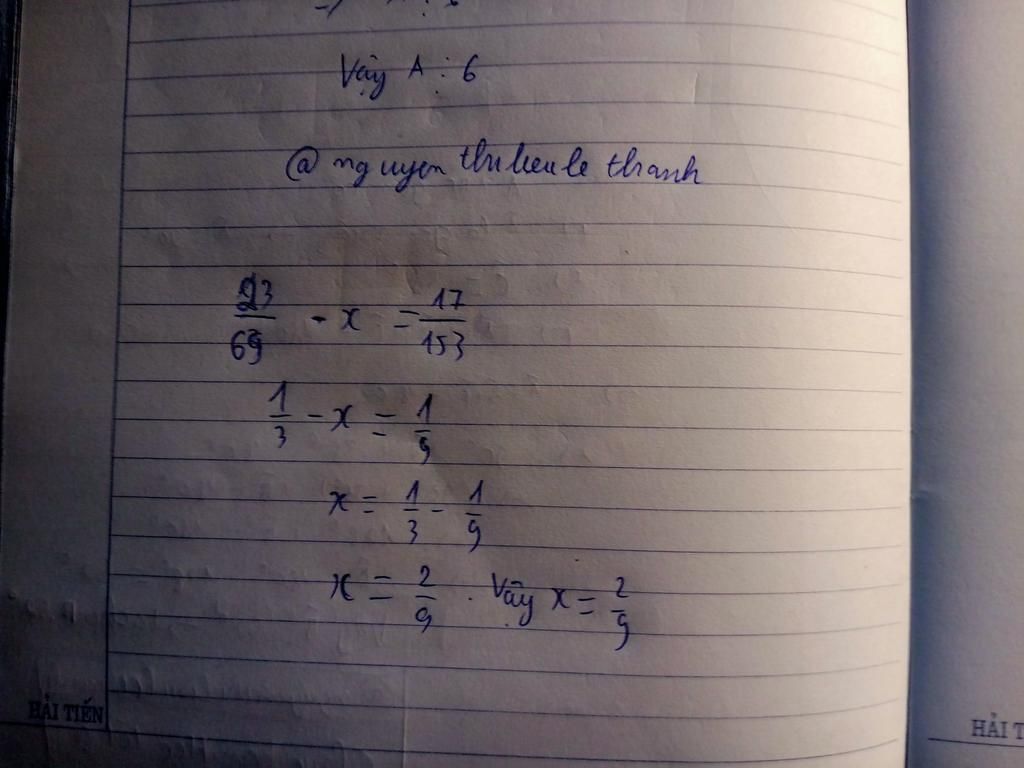 Vậy A ⋮ 6
@ nguyen thi keu le thanh
23/69 - x = 17/153
1/3 - x = 1/9
x = 1/3 - 1/9
x = 2/9 . Vậy x = 2/9
HẢI TIẾN
HẢI T